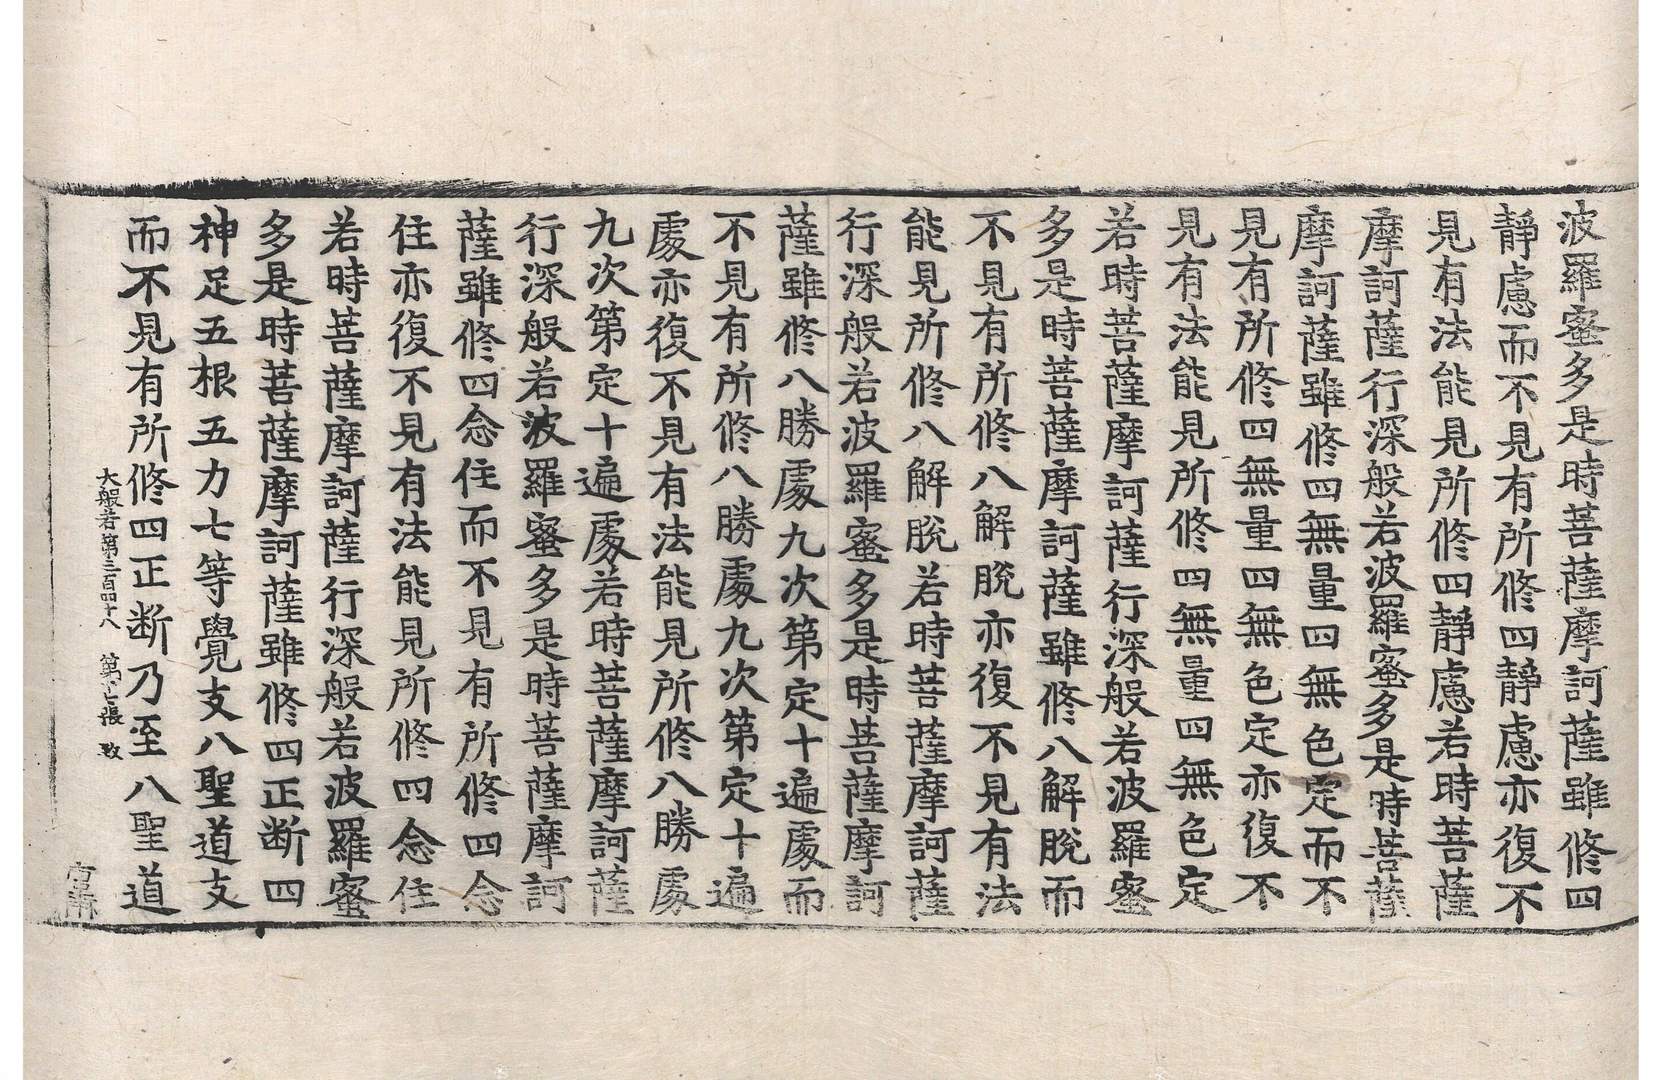 波羅蜜多是時菩薩摩訶薩雖修四
靜慮而不見有所修四靜慮亦復不
見有法能見所修四靜慮若時菩薩
摩訶薩行深般若波羅蜜多是時菩薩
摩訶薩雖修四無量四無色定而不
見有所修四無量四無色定亦復不
見有法能見所修四無量四無色定
若時菩薩摩訶薩行深般若波羅蜜
多是時菩薩摩訶薩雖修八解脫而
不見有所修八解脫亦復不見有法
能見所修八解脫若時菩薩摩訶薩
行深般若波羅蜜多是時菩薩摩訶
薩雖修八勝處九次第定十遍處而
不見有所修八勝處九次第定十遍
處亦復不見有法能見所修八勝處
九次第定十遍處若時菩薩摩訶薩
行深般若波羅蜜多是時菩薩摩訶
薩雖修四念住而不見有所修四念
住亦復不見有法能見所修四念住
若時菩薩摩訶薩行深般若波羅蜜
多是時菩薩摩訶薩雖修四正断四
神足五根五力七等覺支八聖道支
而不見有所修四正断乃至八聖道
大般若第三百四十八 第十七張 致